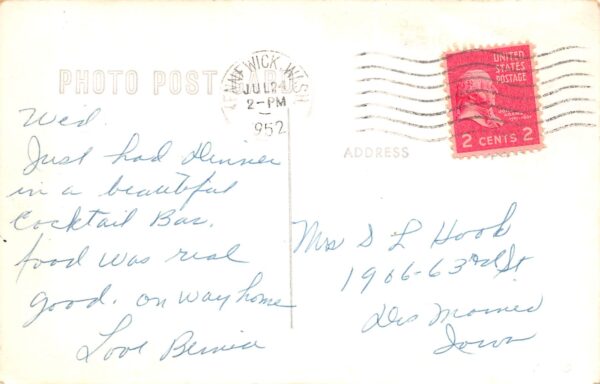 PHOTO POST CARD
KENNEWICK, WASH.
JUL 24
2-PM
1952
UNITED
STATES
POSTAGE
2 CENTS 2
ADDRESS
Wed.
Just had Dinner
in a beautiful
Cocktail Bar.
food was real
good. on way home
Love Bernice
Mrs D L Hook
1906-63rd St
Des Moines
Iowa